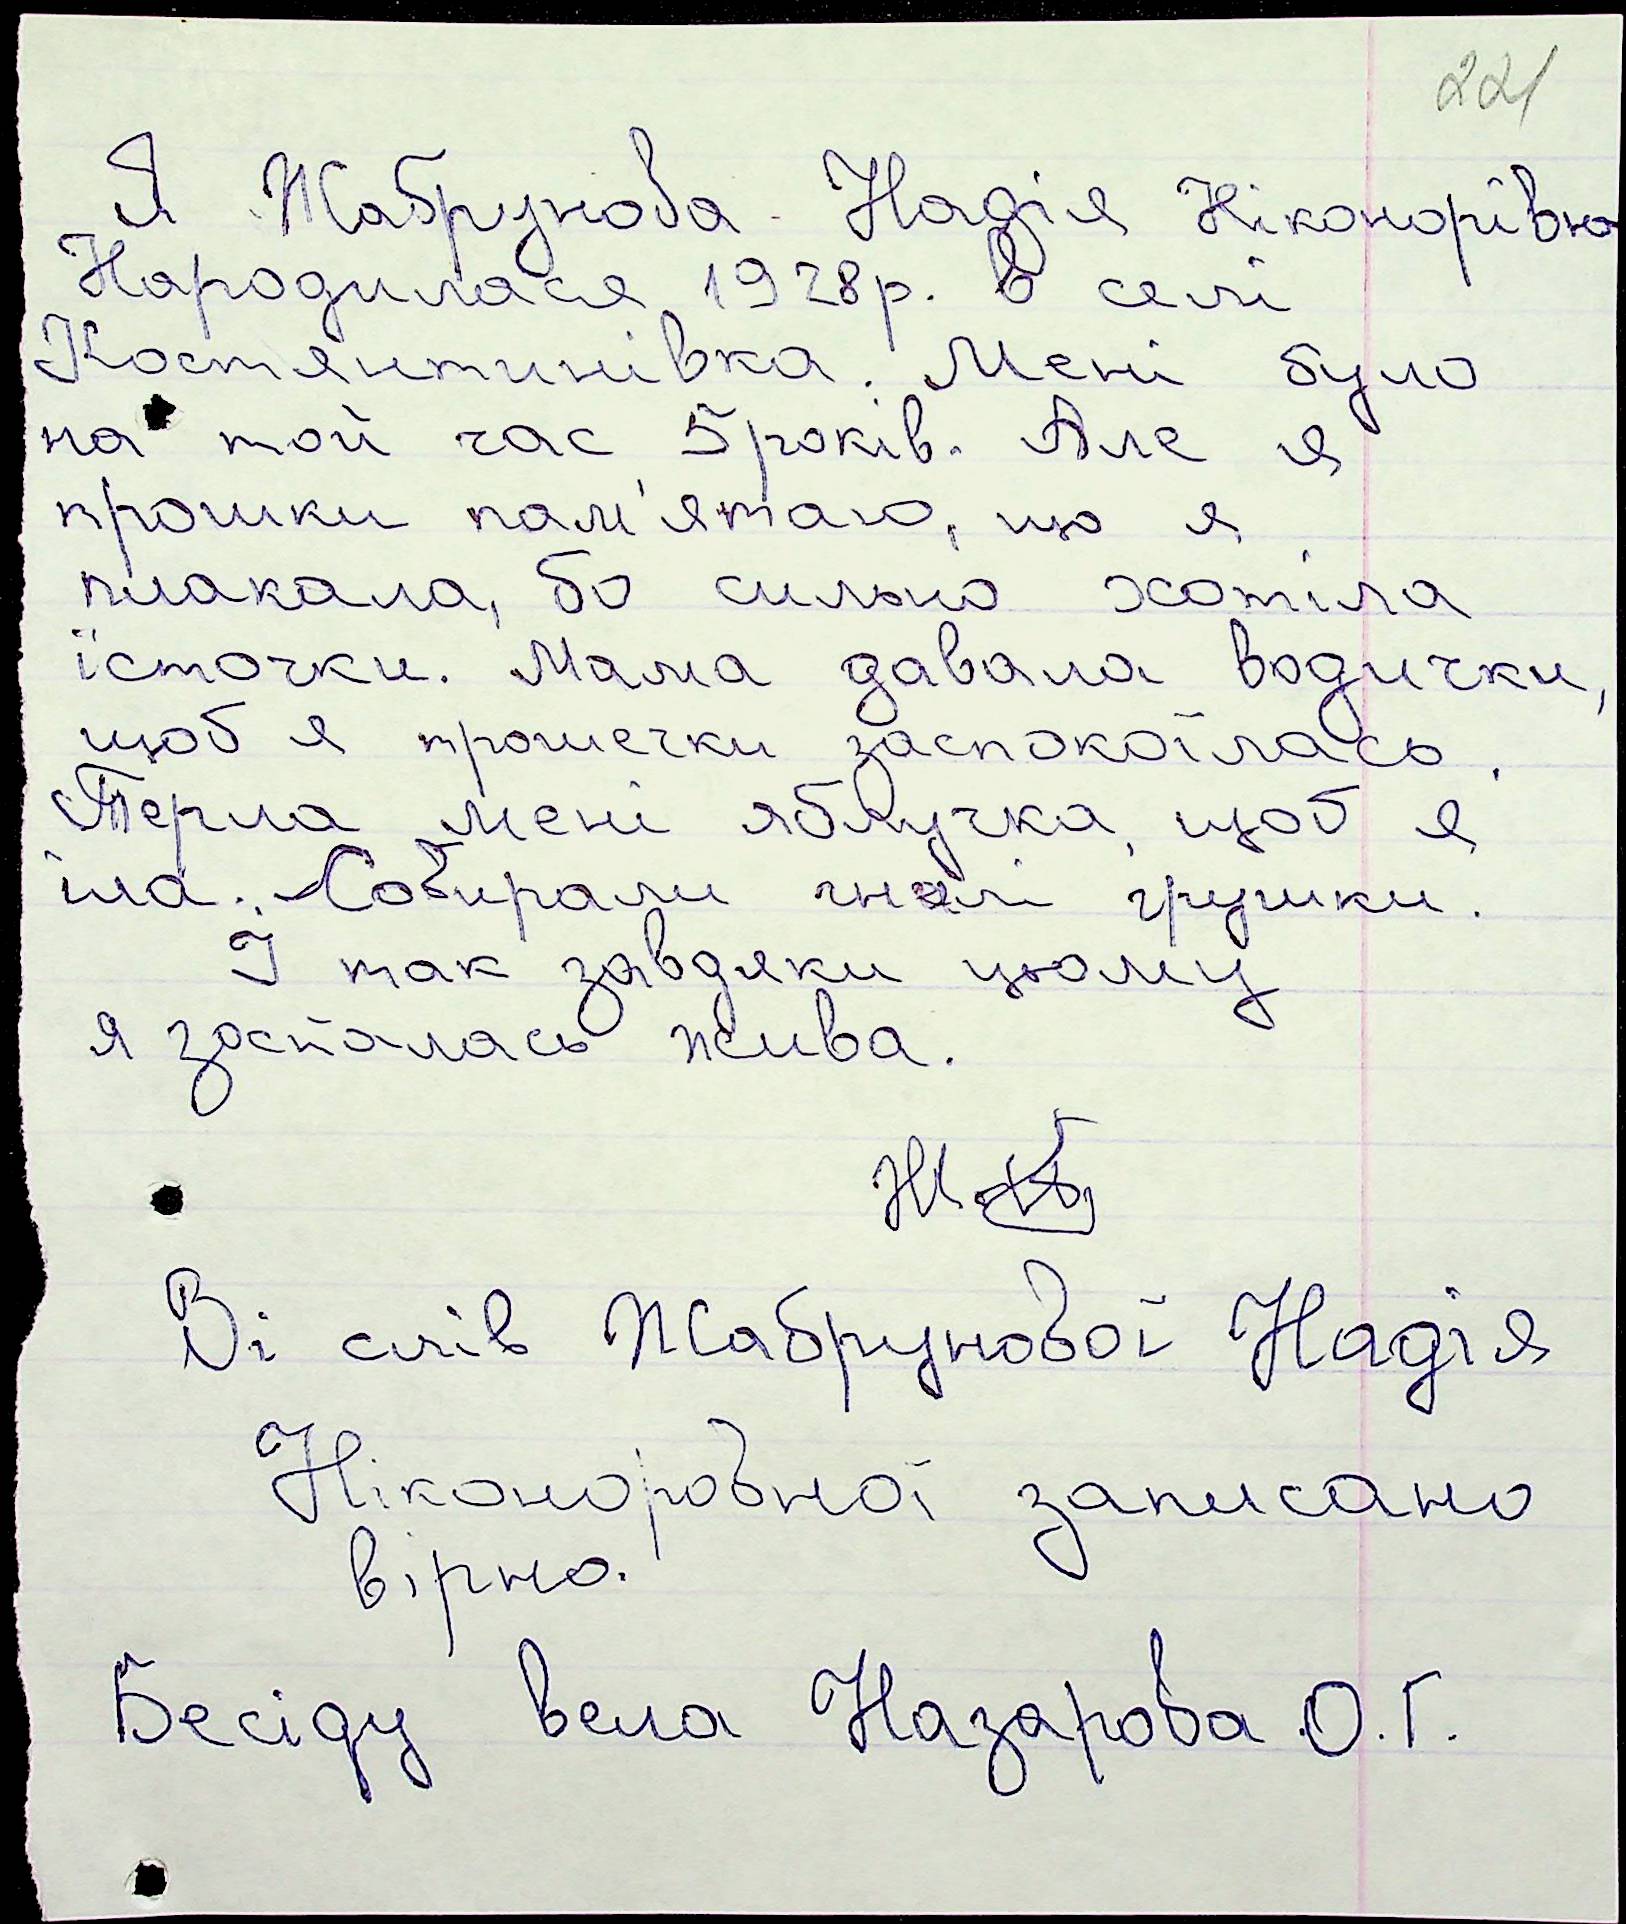 221
Я Жабрунова Надія Ніконорівна
Народилася 1928р. в селі
Костянтинівка. Мені було
на той час 5років. Але я
трошки пам'ятаю, що я
плакала, бо сильно хотіла
їсточки. Мама давала водички,
щоб я трошечки заспокоїлась.
Терла мені яблучка, щоб я
їла. Собирали гнилі грушки.
І так завдяки цьому
я зосталась жива.
Зі слів Жабрунової Надія
Ніконоровної записано
вірно.
Бесіду вела Назарова О.Г.